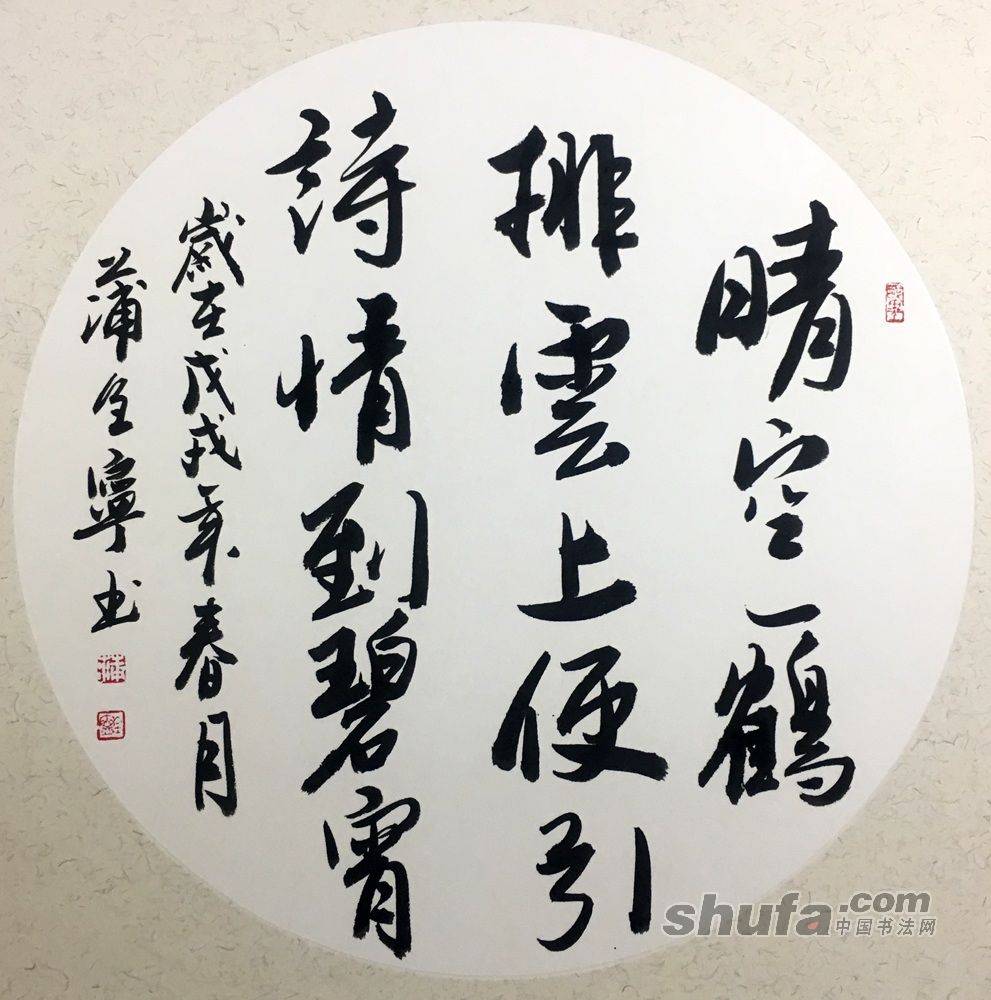 晴空一鶴
排雲上便引
詩情到碧宵
歲在戊戌年春月
蒲全寧书
shufa.com
中国书法网